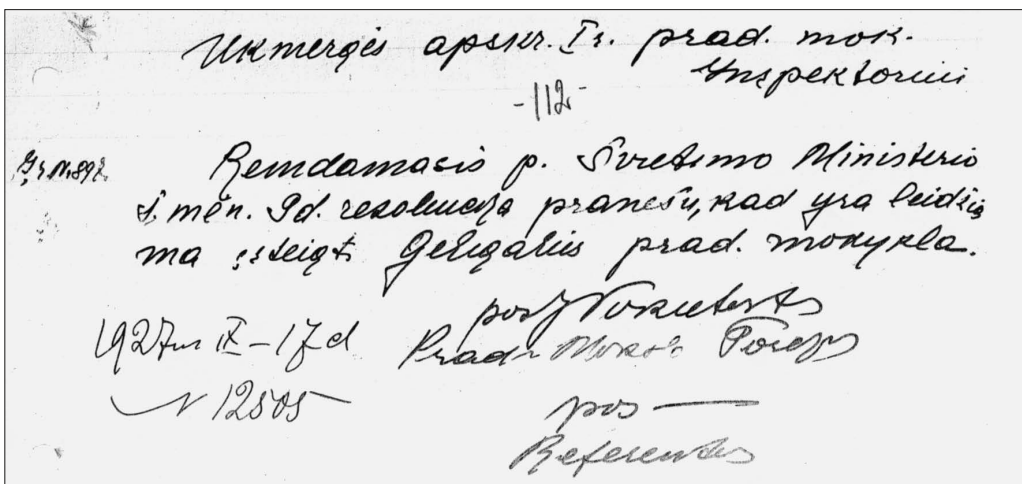 Ukmergės apskr. I r. prad. mok.
Inspektoriui
-112-
Remdamasis p. Švietimo Ministerio
š. mėn. 9 d. rezoliucija pranešu, kad yra leidžia
ma įsteigti Geligalius prad. mokykla.
pas.
1927 m IX-17 d
Prad. Mokslo
N 12505
pas
Referentas